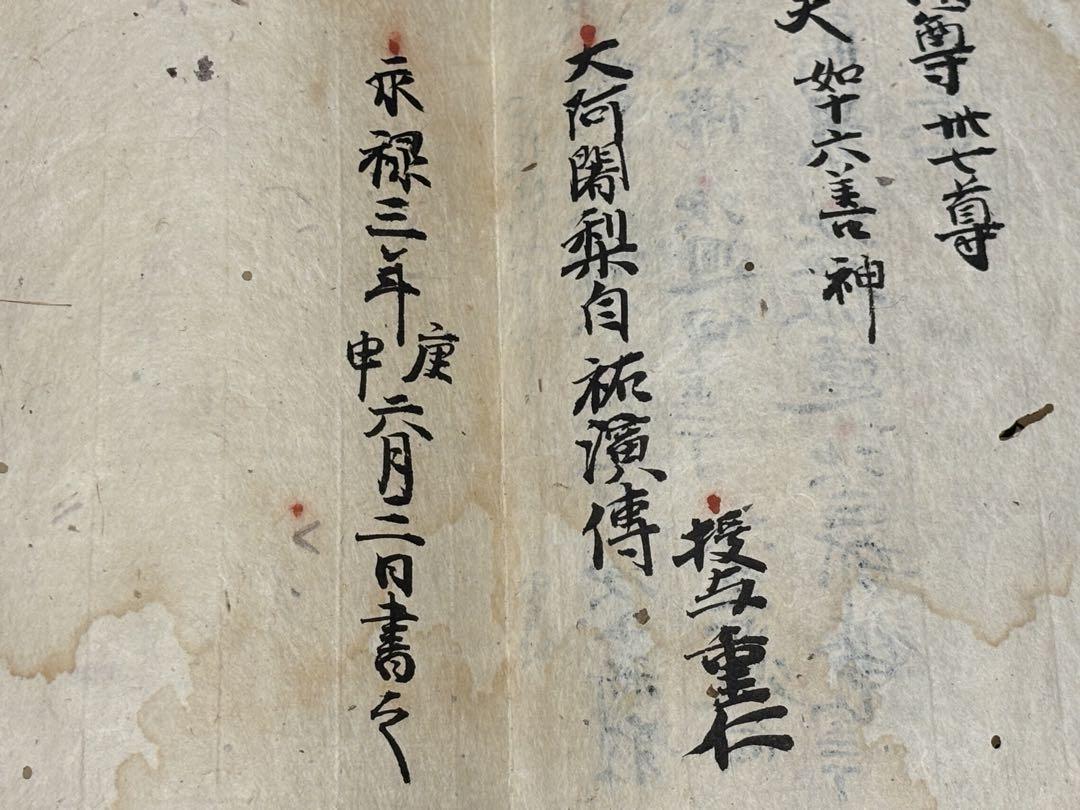 尊 卌七尊
天 如十六善神
授与重仁
大阿闍梨自祐濱傳
永禄三年庚申六月二日書之